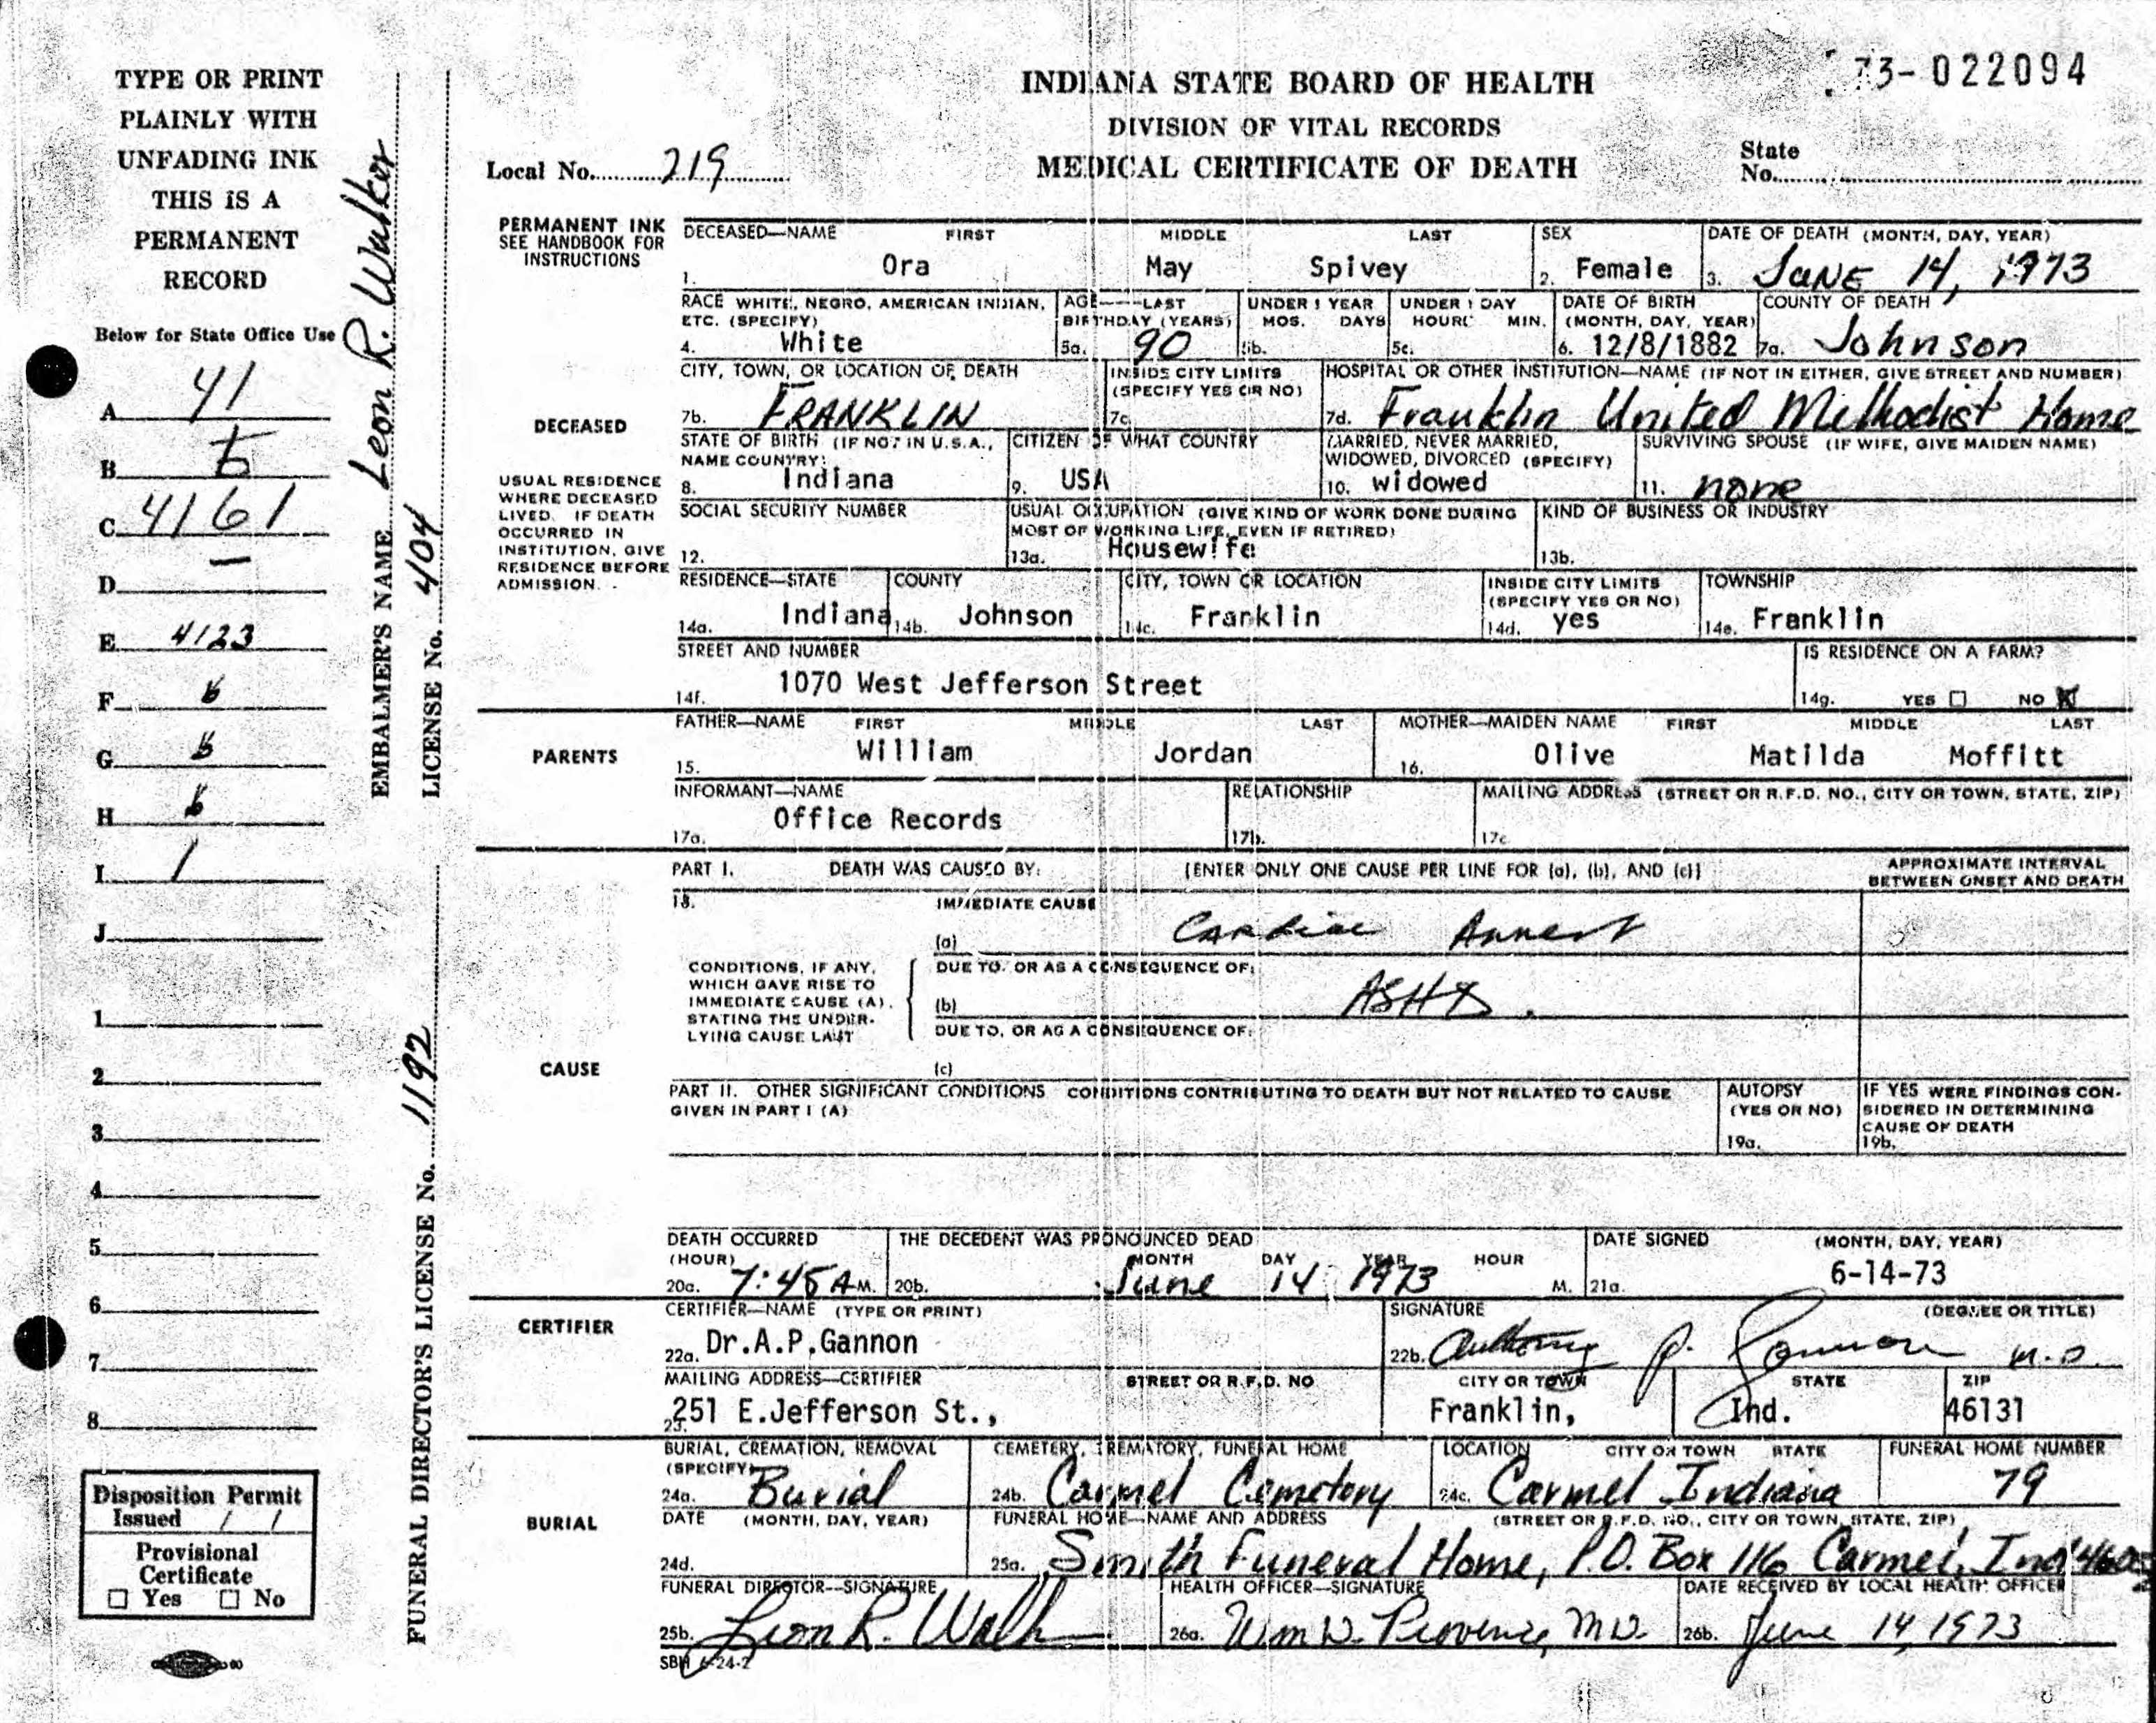 TYPE OR PRINT
PLAINLY WITH
UNFADING INK
THIS IS A
PERMANENT
RECORD
Below for State Office Use
A 41
B
C 4161
D —
E 4123
F
G
H
I 1
J
1
2
3
4
5
6
7
8
Disposition Permit
Issued / /
Provisional
Certificate
☐ Yes ☐ No
EMBALMER'S NAME Leon R. Walker
LICENSE No. 404
FUNERAL DIRECTOR'S LICENSE No. 1192
73-022094
INDIANA STATE BOARD OF HEALTH
DIVISION OF VITAL RECORDS
MEDICAL CERTIFICATE OF DEATH
Local No. 219
State
No.
PERMANENT INK
SEE HANDBOOK FOR
INSTRUCTIONS
DECEASED—NAME FIRST MIDDLE LAST SEX DATE OF DEATH (MONTH, DAY, YEAR)
1. Ora May Spivey 2. Female 3. JUNE 14, 1973
RACE WHITE, NEGRO, AMERICAN INDIAN, ETC. (SPECIFY) AGE—LAST BIRTHDAY (YEARS) UNDER 1 YEAR MOS. DAYS UNDER 1 DAY HOURS MIN. DATE OF BIRTH (MONTH, DAY, YEAR) COUNTY OF DEATH
4. White 5a. 90 5b. 5c. 6. 12/8/1882 7a. Johnson
DECEASED
CITY, TOWN, OR LOCATION OF DEATH INSIDE CITY LIMITS (SPECIFY YES OR NO) HOSPITAL OR OTHER INSTITUTION—NAME (IF NOT IN EITHER, GIVE STREET AND NUMBER)
7b. FRANKLIN 7c. 7d. Franklin United Methodist Home
STATE OF BIRTH (IF NOT IN U.S.A., NAME COUNTRY) CITIZEN OF WHAT COUNTRY MARRIED, NEVER MARRIED, WIDOWED, DIVORCED (SPECIFY) SURVIVING SPOUSE (IF WIFE, GIVE MAIDEN NAME)
8. Indiana 9. USA 10. widowed 11. none
USUAL RESIDENCE
WHERE DECEASED
LIVED. IF DEATH
OCCURRED IN
INSTITUTION, GIVE
RESIDENCE BEFORE
ADMISSION.
SOCIAL SECURITY NUMBER USUAL OCCUPATION (GIVE KIND OF WORK DONE DURING MOST OF WORKING LIFE, EVEN IF RETIRED) KIND OF BUSINESS OR INDUSTRY
12. 13a. Housewife 13b.
RESIDENCE—STATE COUNTY CITY, TOWN OR LOCATION INSIDE CITY LIMITS (SPECIFY YES OR NO) TOWNSHIP
14a. Indiana 14b. Johnson 14c. Franklin 14d. yes 14e. Franklin
STREET AND NUMBER IS RESIDENCE ON A FARM?
14f. 1070 West Jefferson Street 14g. YES ☐ NO ☒
PARENTS
FATHER—NAME FIRST MIDDLE LAST MOTHER—MAIDEN NAME FIRST MIDDLE LAST
15. William Jordan 16. Olive Matilda Moffitt
INFORMANT—NAME RELATIONSHIP MAILING ADDRESS (STREET OR R.F.D. NO., CITY OR TOWN, STATE, ZIP)
17a. Office Records 17b. 17c.
CAUSE
PART I. DEATH WAS CAUSED BY: [ENTER ONLY ONE CAUSE PER LINE FOR (a), (b), AND (c)] APPROXIMATE INTERVAL BETWEEN ONSET AND DEATH
18. IMMEDIATE CAUSE
(a) Cardiac Arrest
CONDITIONS, IF ANY,
WHICH GAVE RISE TO
IMMEDIATE CAUSE (A),
STATING THE UNDER-
LYING CAUSE LAST
DUE TO, OR AS A CONSEQUENCE OF:
(b) ASHD.
DUE TO, OR AS A CONSEQUENCE OF:
(c)
PART II. OTHER SIGNIFICANT CONDITIONS CONDITIONS CONTRIBUTING TO DEATH BUT NOT RELATED TO CAUSE GIVEN IN PART I (A)
AUTOPSY (YES OR NO) 19a.
IF YES WERE FINDINGS CONSIDERED IN DETERMINING CAUSE OF DEATH 19b.
CERTIFIER
DEATH OCCURRED (HOUR) THE DECEDENT WAS PRONOUNCED DEAD MONTH DAY YEAR HOUR DATE SIGNED (MONTH, DAY, YEAR)
20a. 7:45 A M. 20b. June 14 1973 M. 21a. 6-14-73
CERTIFIER—NAME (TYPE OR PRINT) SIGNATURE (DEGREE OR TITLE)
22a. Dr.A.P.Gannon 22b. Anthony P. Gannon M.D.
MAILING ADDRESS—CERTIFIER STREET OR R.F.D. NO CITY OR TOWN STATE ZIP
23. 251 E.Jefferson St., Franklin, Ind. 46131
BURIAL
BURIAL, CREMATION, REMOVAL (SPECIFY) CEMETERY, CREMATORY, FUNERAL HOME LOCATION CITY OR TOWN STATE FUNERAL HOME NUMBER
24a. Burial 24b. Carmel Cemetery 24c. Carmel Indiana 79
DATE (MONTH, DAY, YEAR) FUNERAL HOME—NAME AND ADDRESS (STREET OR R.F.D. NO., CITY OR TOWN, STATE, ZIP)
24d. 25a. Smith Funeral Home, P.O. Box 116 Carmel, Ind
FUNERAL DIRECTOR—SIGNATURE HEALTH OFFICER—SIGNATURE DATE RECEIVED BY LOCAL HEALTH OFFICER
25b. Leon R. Walk 26a. Wm W. Province, MD. 26b. June 14, 1973
SBH 6-24-2